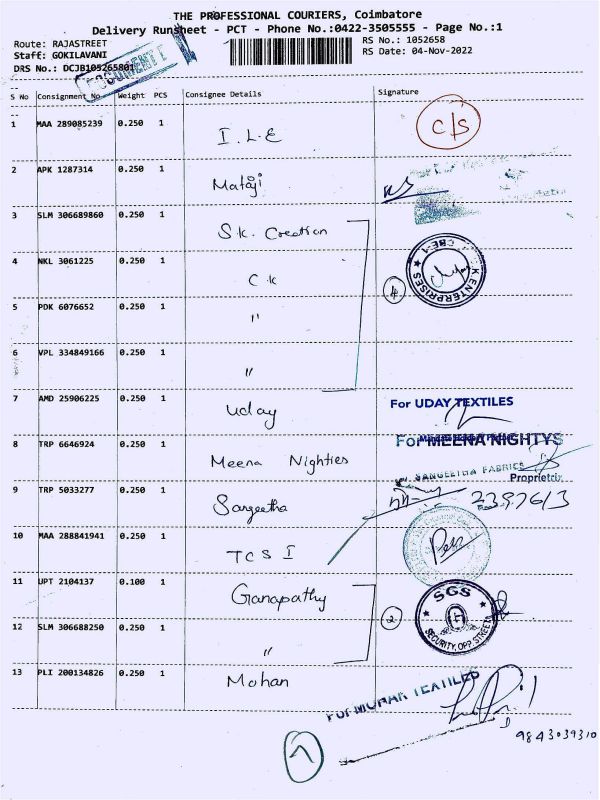 THE PROFESSIONAL COURIERS, Coimbatore
Delivery Runsheet - PCT - Phone No.:0422-3505555 - Page No.:1
Route: RAJASTREET
RS No.: 1052658
Staff: GOKILAVANI
RS Date: 04-Nov-2022
DRS No.: DCJB105265801
DOCUMENT
S No Consignment No Weight PCS Consignee Details Signature
1 MAA 289085239 0.250 1 I.L.E C/S
2 APK 1287314 0.250 1 Mataji
3 SLM 306689860 0.250 1 S.K. Creation
4 NKL 3061225 0.250 1 C K 4
K ENTERPRISES
CBE-1
5 PDK 6076652 0.250 1 "
6 VPL 334849166 0.250 1 "
7 AMD 25906225 0.250 1 Uday For UDAY TEXTILES
8 TRP 6646924 0.250 1 Meena Nighties For MEENA NIGHTYS
SANGEETHA FABRICS
Proprietrix
9 TRP 5033277 0.250 1 Sangeetha 2397613
10 MAA 288841941 0.250 1 TCS I
11 UPT 2104137 0.100 1 Ganapathy 2
SGS
SECURITY, OPP. STREET
12 SLM 306688250 0.250 1 "
13 PLI 200134826 0.250 1 Mohan
For MOHAN TEXTILES
9843039310